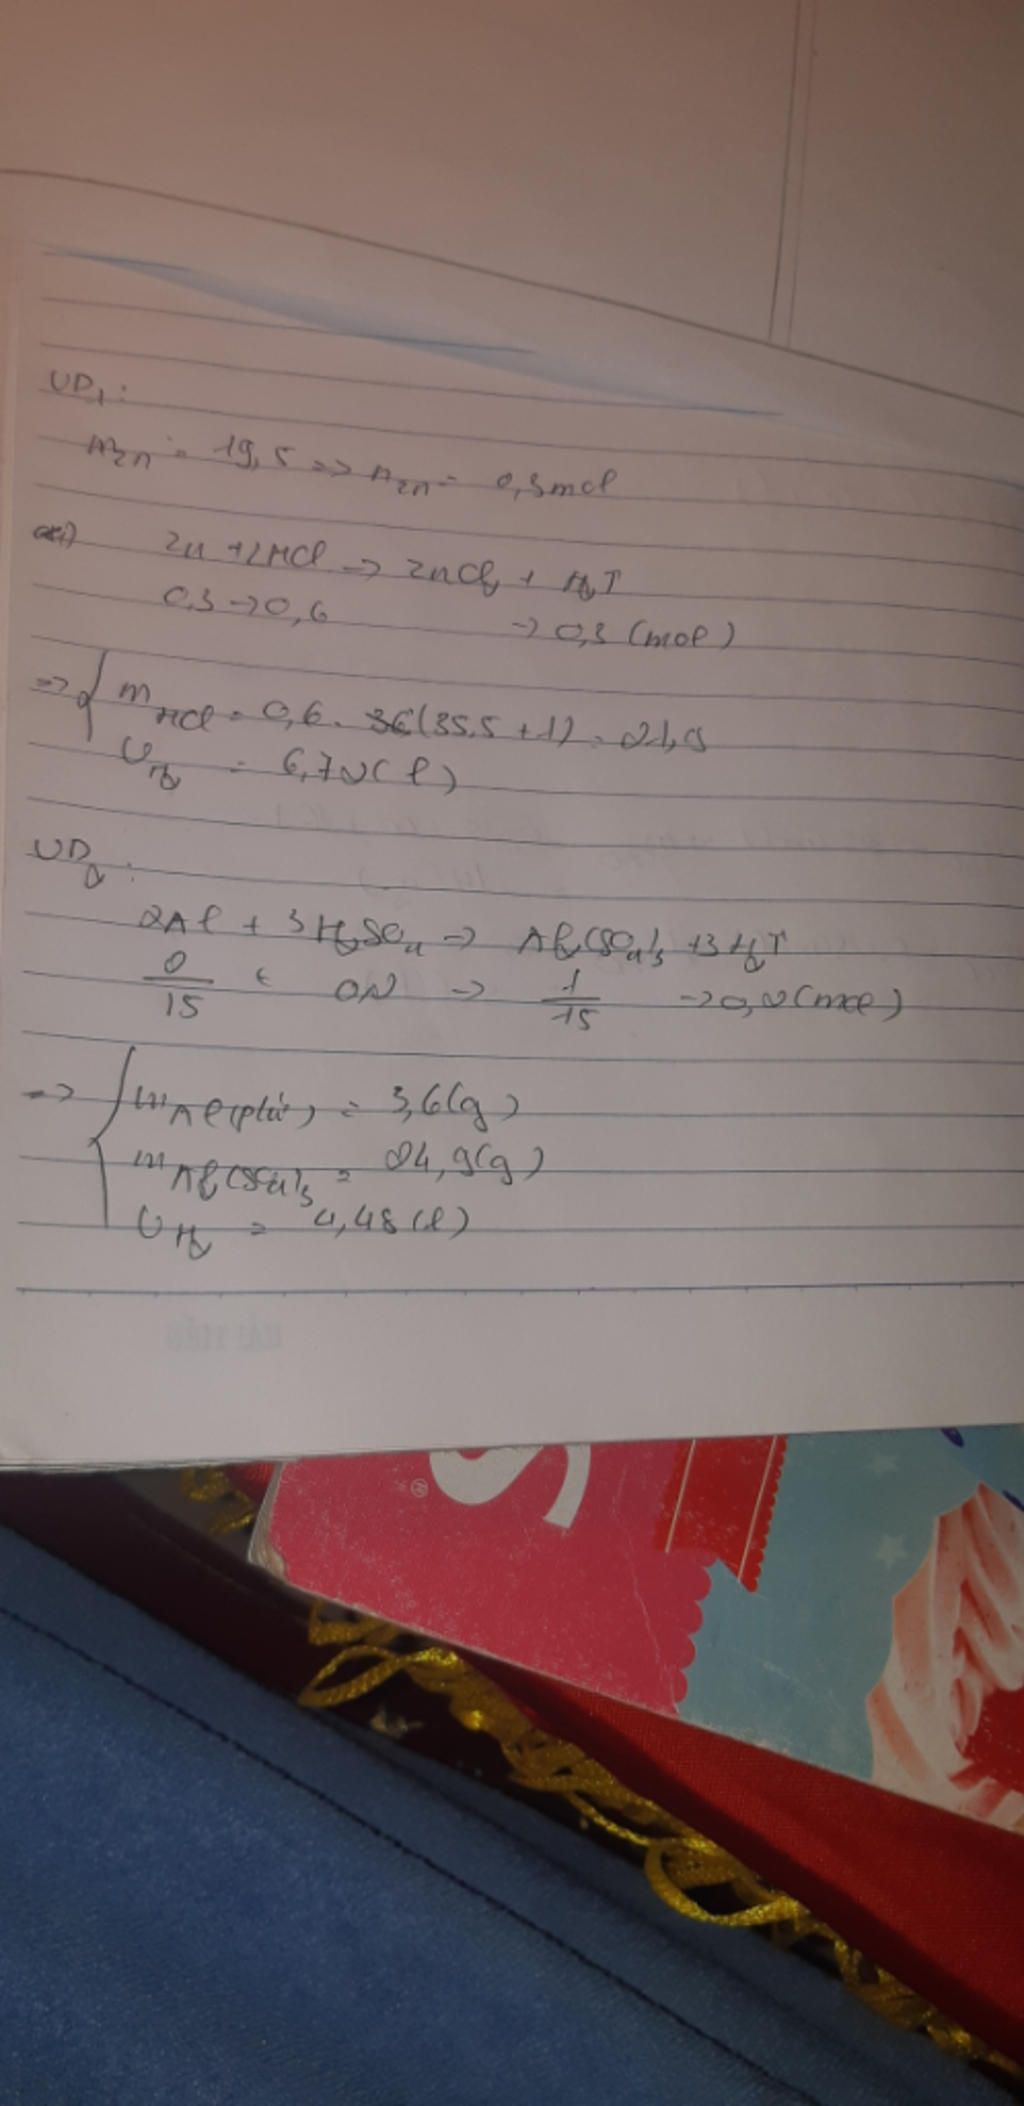 VD1:
mZn = 19,5 => nZn = 0,3 mol
Zn + 2HCl -> ZnCl2 + H2↑
0,3 -> 0,6 -> 0,3 (mol)
=> { mHCl = 0,6 . (35,5 + 1) = 21,9
VH2 = 6,72 (l)
VD2:
2Al + 3H2SO4 -> Al2(SO4)3 + 3H2↑
2/15 ← 0,2 -> 1/15 -> 0,2 (mol)
=> { mAl(pứ) = 3,6 (g)
mAl2(SO4)3 = 24,9 (g)
VH2 = 4,48 (l)
S
®